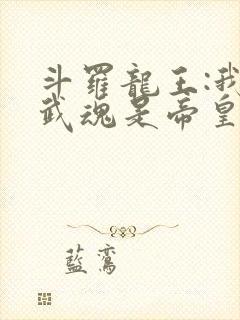 斗羅龍王:我
武魂是帝皇
藍鸞